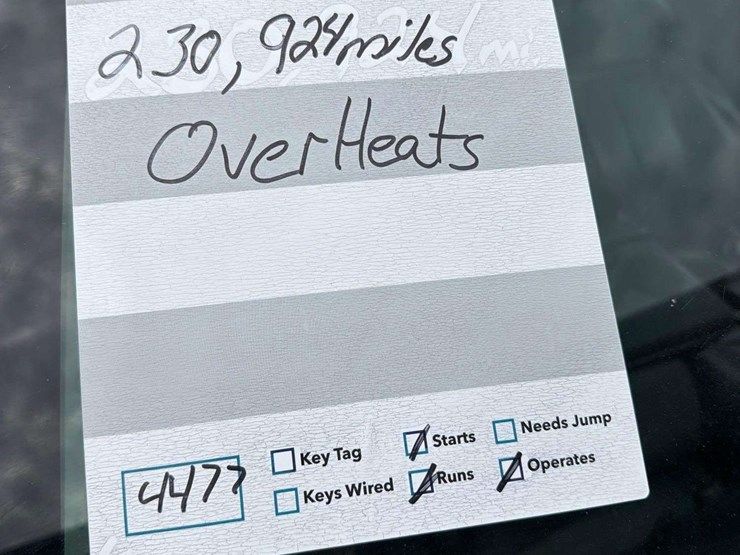 230,924 miles
OverHeats
Key Tag Starts Needs Jump
4477 Keys Wired Runs Operates